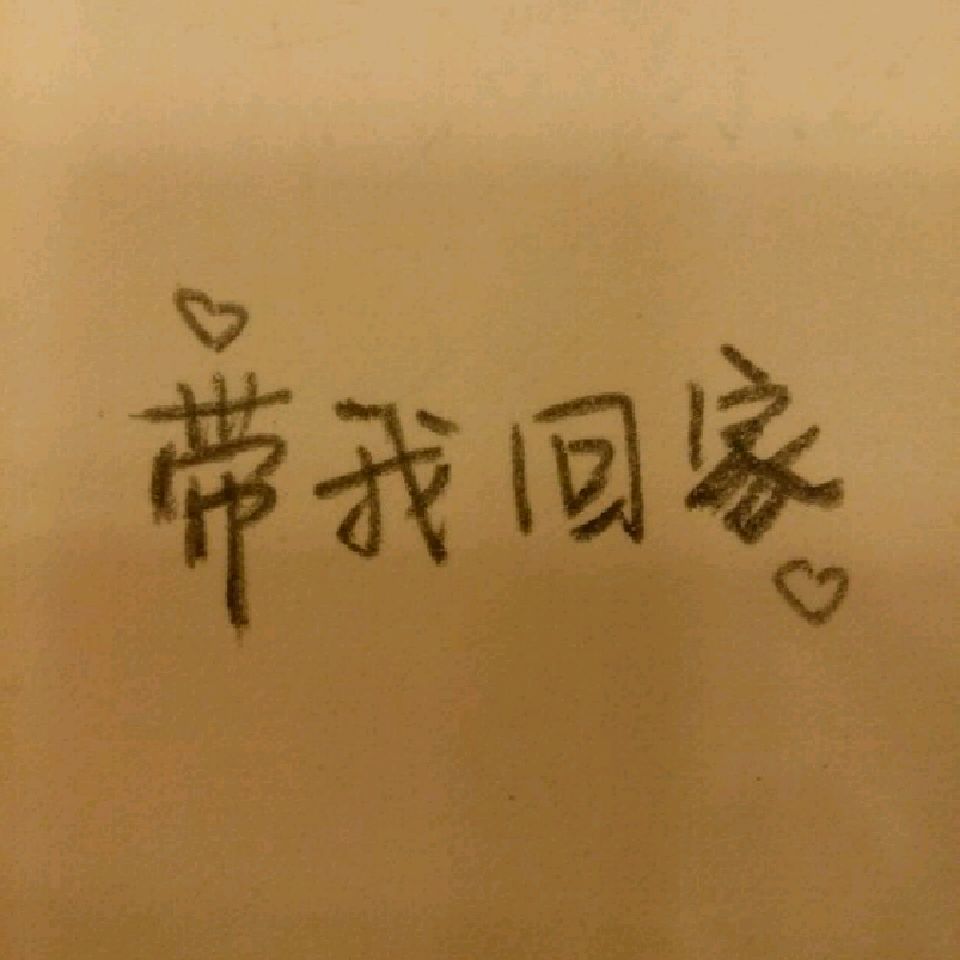 带我回家